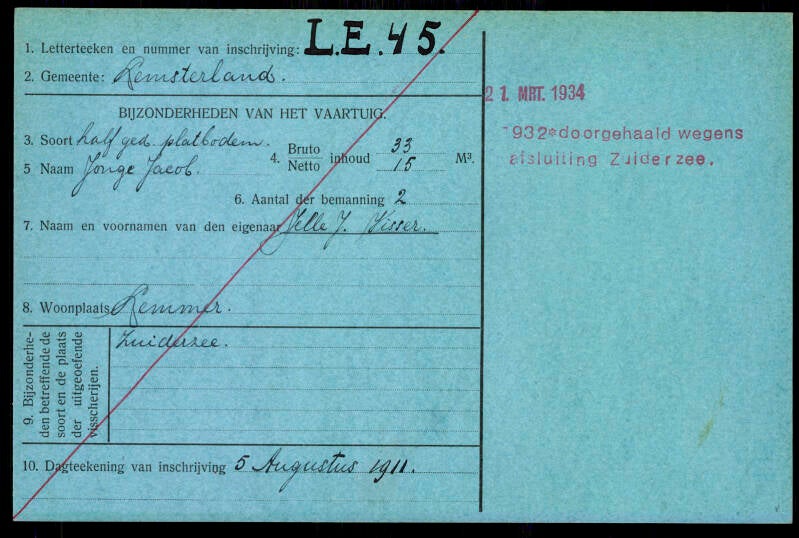 1. Letterteeken en nummer van inschrijving: L.E. 45.
2. Gemeente: Lemsterland.
BIJZONDERHEDEN VAN HET VAARTUIG.
3. Soort half ged. platbodem.
4. Bruto Netto inhoud 33 15 M³.
5 Naam Jonge Jacob.
6. Aantal der bemanning 2
7. Naam en voornamen van den eigenaar Jelle J. Visser.
8. Woonplaats Lemmer.
9. Bijzonderhe-
den betreffende de
soort en de plaats
der uitgeoefende
visscherijen.
Zuiderzee.
10. Dagteekening van inschrijving 5 Augustus 1911.
21. MRT. 1934
1932 doorgehaald wegens
afsluiting Zuiderzee.